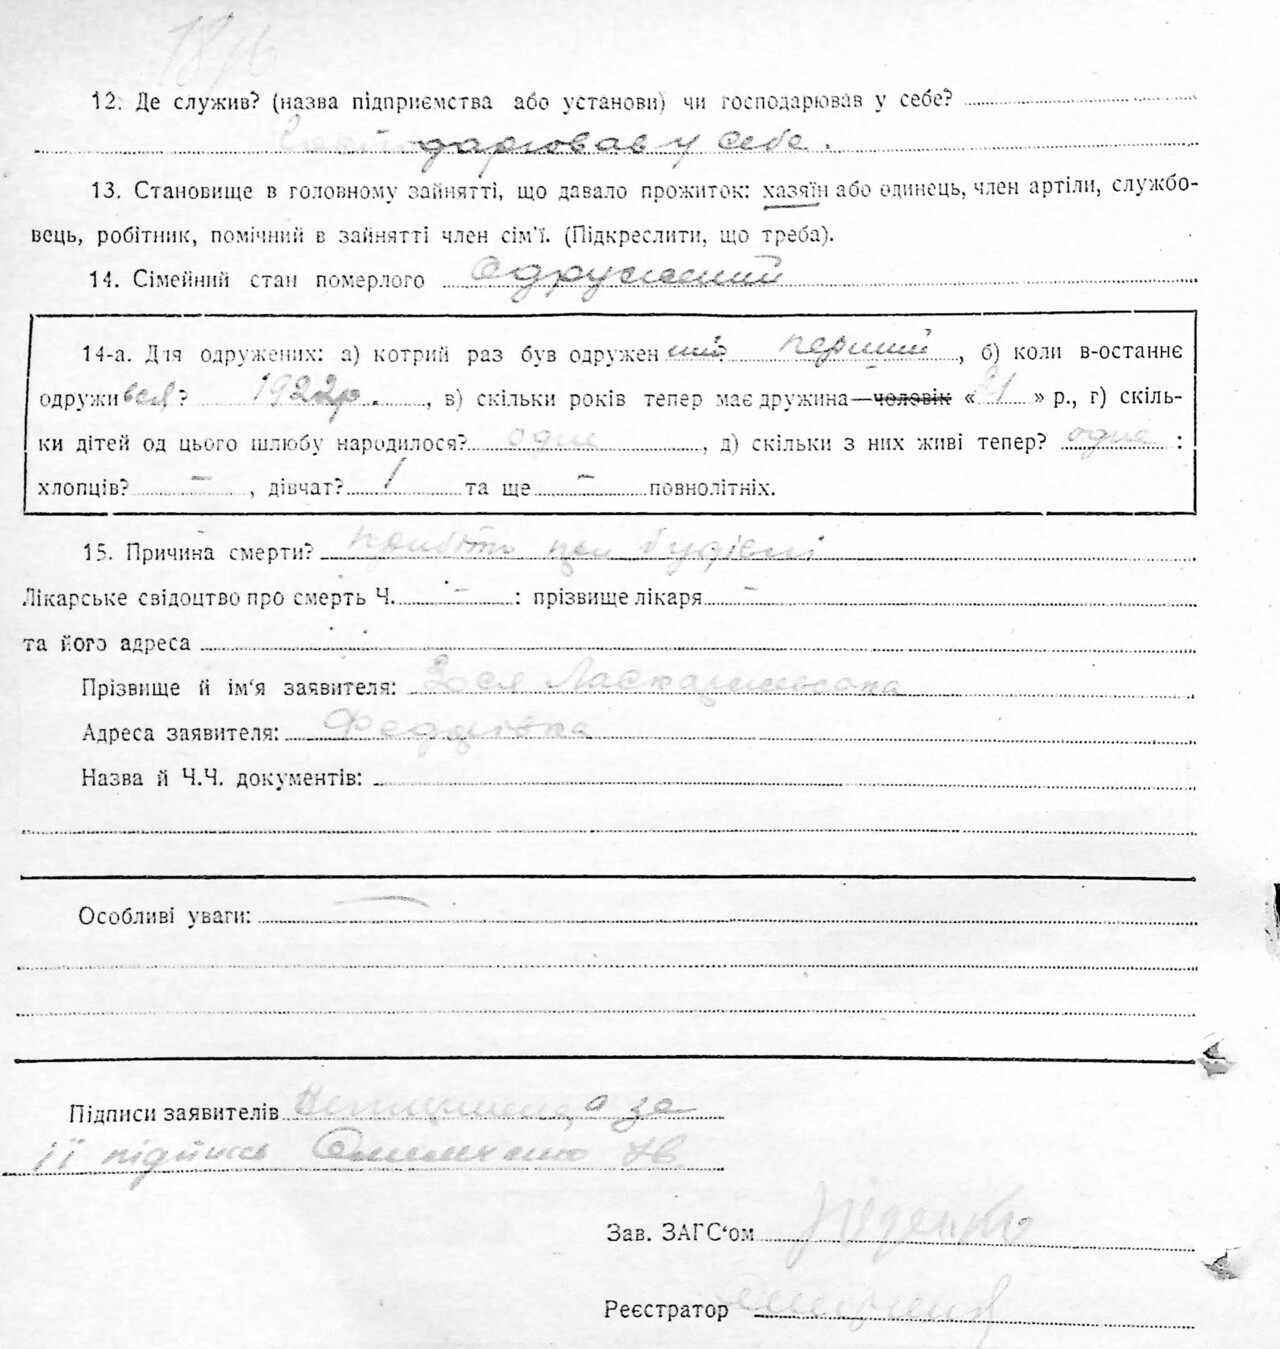 12. Де служив? (назва підприємства або установи) чи господарював у себе?
Господарював у себе.
13. Становище в головному зайнятті, що давало прожиток: хазяїн або одинець, член артіли, службо-
вець, робітник, помічний в зайнятті член сім'ї. (Підкреслити, що треба).
14. Сімейний стан померлого Одружений
14-а. Для одружених: а) котрий раз був одружений перший, б) коли в-останнє
одружився? 1922р., в) скільки років тепер має дружина—чоловік « 21 » р., г) скіль-
ки дітей од цього шлюбу народилося? одне, д) скільки з них живі тепер? одне :
хлопців? –, дівчат? 1 та ще – повнолітніх.
15. Причина смерти? прибито при будівлі
Лікарське свідоцтво про смерть Ч. – : прізвище лікаря –
та його адреса
Прізвище й ім'я заявителя: Зося
Адреса заявителя: Федорівка
Назва й Ч.Ч. документів:
Особливі уваги: —
Підписи заявителів Неписьменна, а за
її підпись
Зав. ЗАГС'ом
Реєстратор